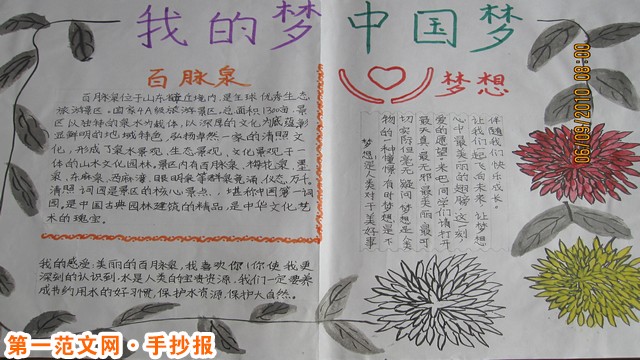 我的梦 中国梦
百脉泉
百月脉泉位于山东章丘境内,是全球优秀生态
旅游景区。国家4A级旅游景区。总面积1300亩,景
区以独特的泉水为载体,以深厚的文化为底蕴,彰
显鲜明的地域特色,弘扬卓然一家的清照文
化,形成了泉水景观,生态景观,文化景观于一
体的山水文化园林。景区内有百月脉泉,梅花泉,墨
泉,东麻泉,西麻湾,眼明泉等群泉竞涌,仪态万千。
清照词园是景区的核心景点,堪称中国第一词
园。是中国古典园林建筑的精品,是中华文化艺
术的瑰宝。
我的感受:美丽的百月脉泉,我喜欢你!你使我更
深刻的认识到:水是人类的宝贵资源,我们一定要养
成节约用水的好习惯,保护水资源,保护大自然。
梦想
梦想是人类对于美好事
物的一种憧憬,有时梦想是不
切实际但毫无疑问梦想是人类
最天真最无邪最美丽最可
爱的愿望。来吧同学们请打开
心中最美丽的翅膀,这一刻,
让我们起飞向未来,让梦想
伴随我们快乐成长。
06/09/2010 08:80
第一范文网·手抄报